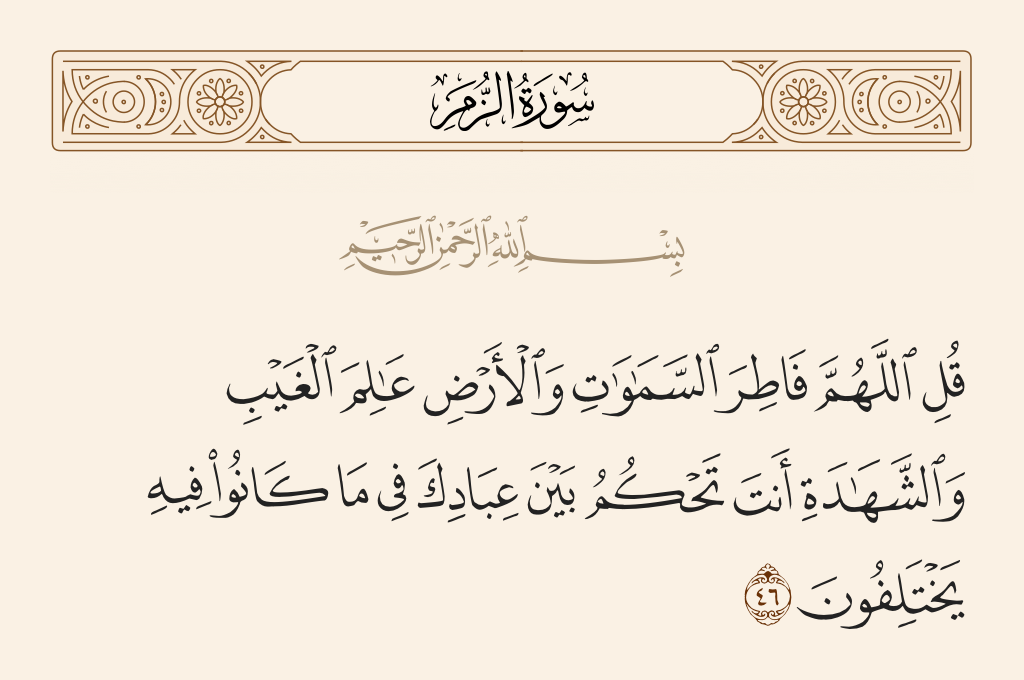 سُورَةُ الزُّمَرِ
بِسْمِ ٱللَّهِ ٱلرَّحْمَٰنِ ٱلرَّحِيمِ
قُلِ ٱللَّهُمَّ فَاطِرَ ٱلسَّمَٰوَٰتِ وَٱلْأَرْضِ عَٰلِمَ ٱلْغَيْبِ
وَٱلشَّهَٰدَةِ أَنتَ تَحْكُمُ بَيْنَ عِبَادِكَ فِى مَا كَانُوا۟ فِيهِ
يَخْتَلِفُونَ ٤٦